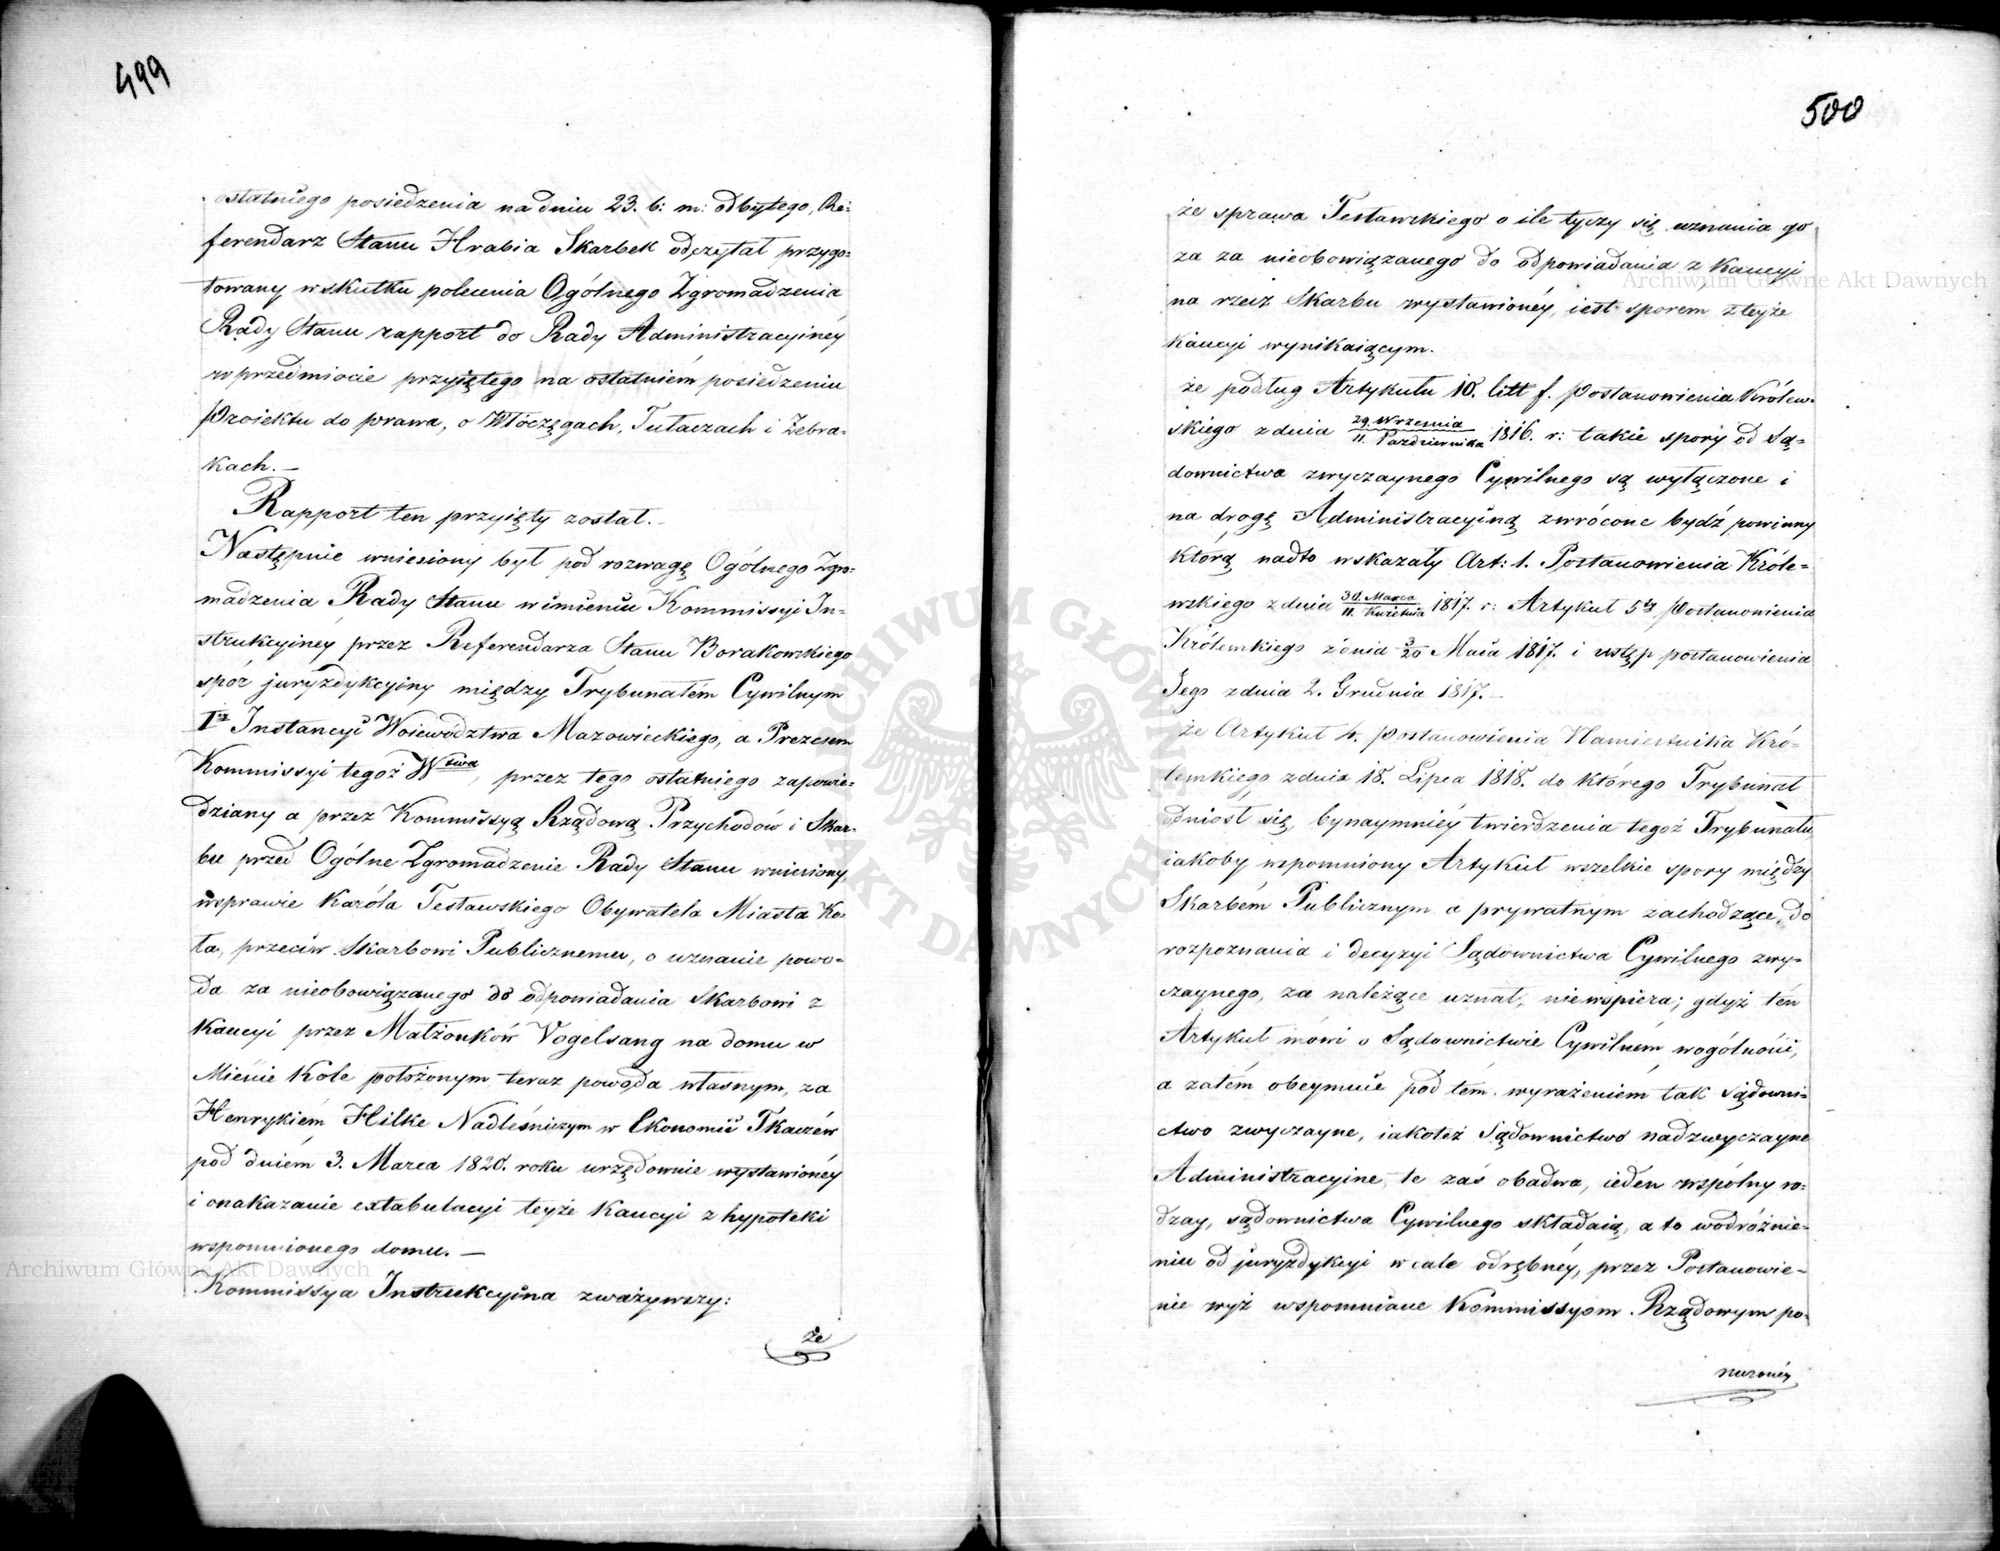 499
ostatniego posiedzenia na dniu 23. b: m: odbytego, Re-
ferendarz Stanu Hrabia Skarbek odczytał przygo-
towany w skutku polecenia Ogólnego Zgromadzenia
Rady Stanu rapport do Rady Administracyiney
w przedmiocie przyiętego na ostatniém posiedzeniu
Proiektu do prawa, o Włóczęgach, Tułaczach i Żebra-
kach. —
Rapport ten przyięty został. —
Następnie wniesiony był pod rozwagę Ogólnego Zgro-
madzenia Rady Stanu w imieniu Kommissyi In-
strukcyiney przez Referendarza Stanu Borakowskiego
spór juryzdykcyiny między Trybunałem Cywilnym
I Instancyi Woiewództwa Mazowieckiego, a Prezesem
Kommissyi tegoż Wtwa, przez tego ostatniego zapowie-
dziany a przez Kommissyą Rządową Przychodów i Skar-
bu przed Ogólne Zgromadzenie Rady Stanu wniesiony,
w sprawie Karóla Testawskiego Obywatela Miasta Ko-
ła, przeciw Skarbowi Publicznemu, o uznanie powo-
da za nieobowiązanego do odpowiadania Skarbowi z
Kaucyi przez Małżonków Vogelsang na domu w
Mieście Kole położonym teraz powoda własnym, za
Henrykiem Hilke Nadleśniczym w Ekonomii Tkaczew
pod dniem 3. Marca 1820. roku urzędownie wystawionéy
i o nakazanie extabulacyi teyże Kaucyi z hypoteki
wspomnionego domu. —
Kommissya Instrukcyina zważywszy:
że
500
że sprawa Testawskiego o ile tyczy się uznania go
za za nieobowiązanego do odpowiadania z Kaucyi
na rzecz Skarbu wystawionéy, iest sporem z teyże
Kaucyi wynikaiącym.
że podług Artykułu 10. litt f. Postanowienia Królew-
skiego z dnia 29. Września / 11. Października 1816. r: takie spory od Są-
downictwa zwyczaynego Cywilnego są wyłączone i
na drogę Administracyiną zwrócone bydź powinny
którą nadto wskazały Art: 1. Postanowienia Króle-
wskiego z dnia 30. Marca / 11. Kwietnia 1817. r: Artykuł 5ty Postanowienia
Królewskiego z dnia 3/20 Maia 1817. i wstęp postanowienia
Jego z dnia 2. Grudnia 1817. —
że Artykuł 4. Postanowienia Namiestnika Kró-
lewskiego z dnia 18. Lipca 1818. do którego Trybunał
odniósł się, bynaymniéy twierdzenia tegoż Trybunału,
iakoby wspomniony Artykuł wszelkie spory między
Skarbém Publicznym a prywatnym zachodzące, do
rozpoznania i decyzyi Sądownictwa Cywilnego zwy-
czaynego, za należące uznał, niewspiera; gdyż ten
Artykuł mówi o Sądownictwie Cywilném wogólności,
a zatém obeymuie pod tém wyrażeniém tak Sądowni-
ctwo zwyczayne, iakoteż Sądownictwo nadzwyczayne
Administracyine, te zaś obadwa, ieden wspólny ro-
dzay, sądownictwa Cywilnego składaią, a to w odróżnie-
niu od juryzdykcyi w cale odrębnéy, przez Postanowie-
nie wyż wspomniane Kommissyom Rządowym po-